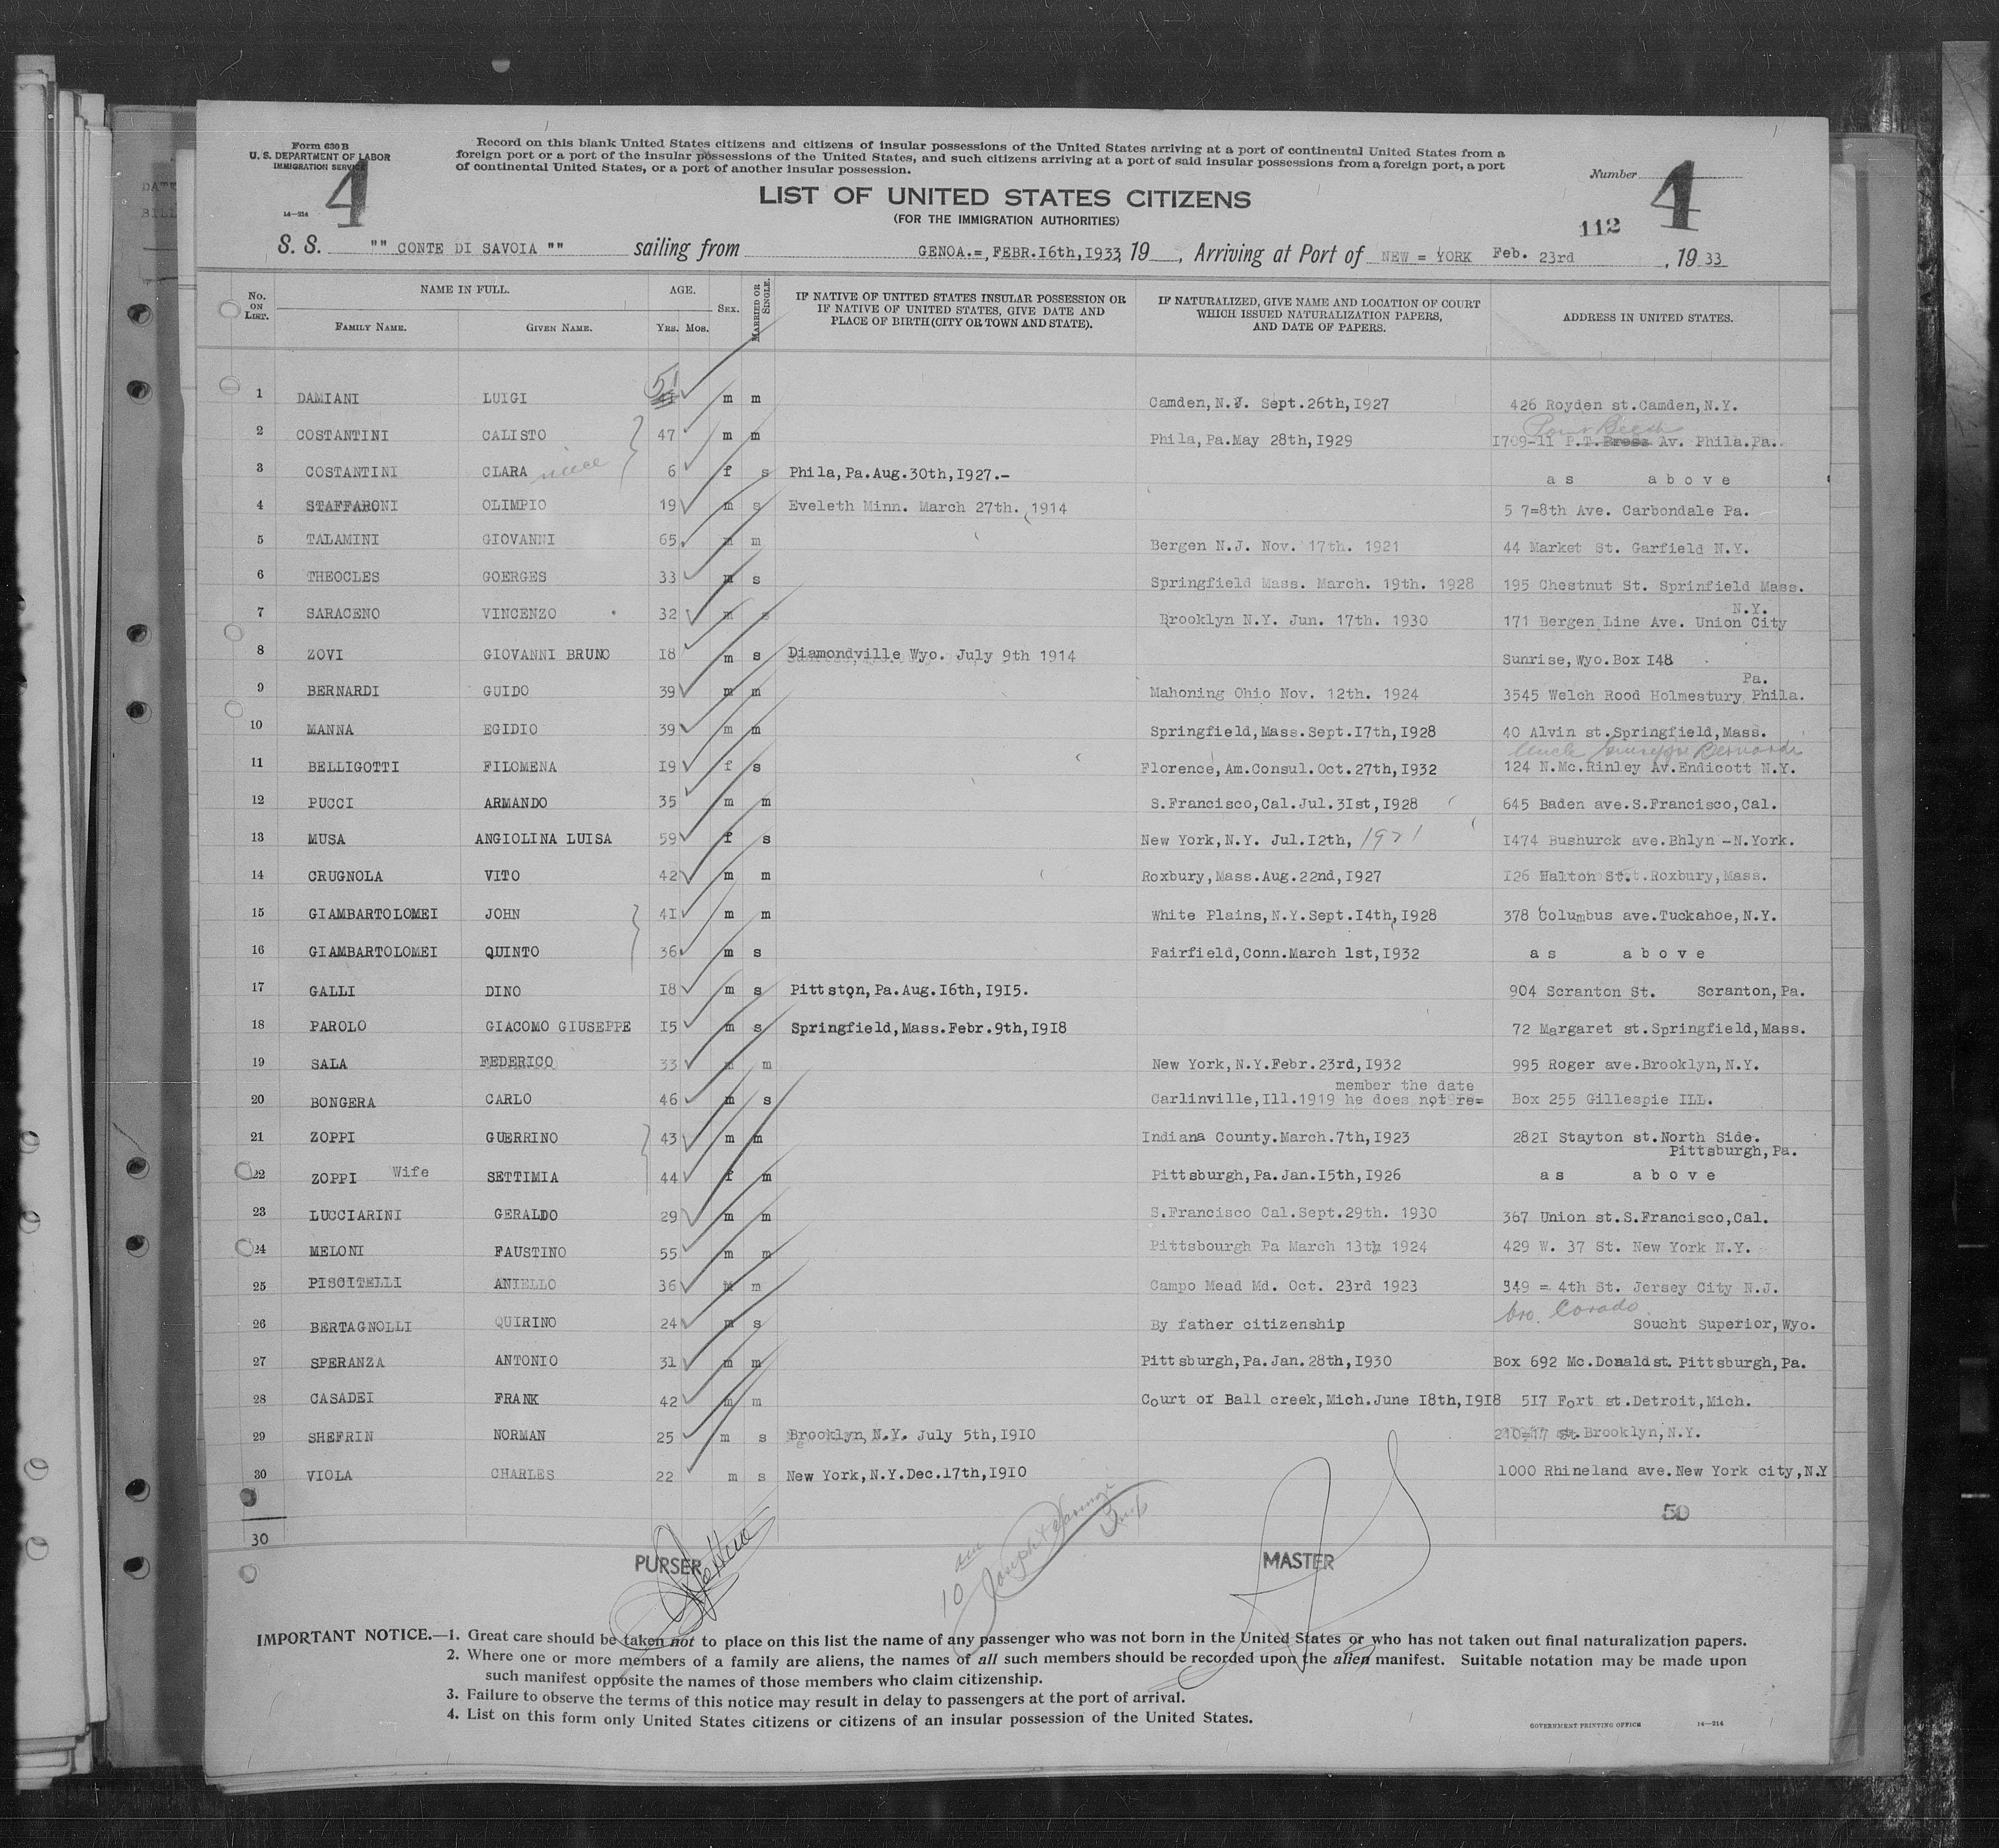 Form 630 B
U. S. DEPARTMENT OF LABOR
IMMIGRATION SERVICE
4
14—214
Record on this blank United States citizens and citizens of insular possessions of the United States arriving at a port of continental United States from a
foreign port or a port of the insular possessions of the United States, and such citizens arriving at a port of said insular possessions from a foreign port, a port
of continental United States, or a port of another insular possession.
Number 4
LIST OF UNITED STATES CITIZENS
(FOR THE IMMIGRATION AUTHORITIES)
112
S. S. "" CONTE DI SAVOIA "" sailing from GENOA.=, FEBR.I6th,I933, 19 , Arriving at Port of NEW = YORK Feb. 23rd , 19 33
No. ON LIST. NAME IN FULL. AGE. SEX. MARRIED OR SINGLE. IF NATIVE OF UNITED STATES INSULAR POSSESSION OR IF NATIVE OF UNITED STATES, GIVE DATE AND PLACE OF BIRTH (CITY OR TOWN AND STATE). IF NATURALIZED, GIVE NAME AND LOCATION OF COURT WHICH ISSUED NATURALIZATION PAPERS, AND DATE OF PAPERS. ADDRESS IN UNITED STATES.
FAMILY NAME. GIVEN NAME. YRS. MOS.
1 DAMIANI LUIGI 51 m m Camden,N.J. Sept.26th,I927 426 Royden st.Camden,N.Y.
2 COSTANTINI CALISTO 47 m m Phila,Pa.May 28th,I929 I709-11 P.T. Av. Phila.Pa.
3 COSTANTINI CLARA niece 6 f s Phila,Pa.Aug.30th,I927.- as above
4 STAFFARONI OLIMPIO 19 m s Eveleth Minn. March 27th. 1914 5 7=8th Ave. Carbondale Pa.
5 TALAMINI GIOVANNI 65 m m Bergen N.J. Nov. 17th. 1921 44 Market St. Garfield N.Y.
6 THEOCLES GOERGES 33 m s Springfield Mass. March. 19th. 1928 195 Chestnut St. Sprinfield Mass.
7 SARACENO VINCENZO 32 m s Brooklyn N.Y. Jun. 17th. 1930 171 Bergen Line Ave. Union City N.Y.
8 ZOVI GIOVANNI BRUNO I8 m s Diamondville Wyo. July 9th 1914 Sunrise,Wyo.Box I48
9 BERNARDI GUIDO 39 m m Mahoning Ohio Nov. 12th. 1924 3545 Welch Rood Holmestury Phila. Pa.
10 MANNA EGIDIO 39 m m Springfield,Mass.Sept.I7th,I928 40 Alvin st.Springfield,Mass.
Uncle Giuseppe Bernardi
11 BELLIGOTTI FILOMENA I9 f s Florence,Am.Consul.Oct.27th,I932 124 N.Mc.Rinley Av.Endicott N.Y.
12 PUCCI ARMANDO 35 m m S.Francisco,Cal.Jul.3Ist,I928 645 Baden ave.S.Francisco,Cal.
13 MUSA ANGIOLINA LUISA 59 f s New York,N.Y. Jul.I2th, 1921 I474 Bushurck ave.Bhlyn -N.York.
14 CRUGNOLA VITO 42 m m Roxbury,Mass.Aug.22nd,I927 I26 Halton St.t.Roxbury,Mass.
15 GIAMBARTOLOMEI JOHN 4I m m White Plains,N.Y.Sept.I4th,I928 378 Columbus ave.Tuckahoe,N.Y.
16 GIAMBARTOLOMEI QUINTO 36 m s Fairfield,Conn.March 1st,I932 as above
17 GALLI DINO I8 m s Pittston,Pa.Aug.I6th,I915. 904 Scranton St. Scranton,Pa.
18 PAROLO GIACOMO GIUSEPPE I5 m s Springfield,Mass.Febr.9th,I9I8 72 Margaret st.Springfield,Mass.
19 SALA FEDERICO 33 m m New York,N.Y.Febr.23rd,I932 995 Roger ave.Brooklyn,N.Y.
member the date
20 BONGERA CARLO 46 m s Carlinville,Ill.1919 he does not re= Box 255 Gillespie ILL.
21 ZOPPI GUERRINO 43 m m Indiana County.March.7th,I923 282I Stayton st.North Side. Pittsburgh,Pa.
22 ZOPPI Wife SETTIMIA 44 f m Pittsburgh,Pa.Jan.I5th,I926 as above
23 LUCCIARINI GERALDO 29 m m S.Francisco Cal.Sept.29th. 1930 367 Union st.S.Francisco,Cal.
24 MELONI FAUSTINO 55 m m Pittsbourgh Pa March 13th 1924 429 W. 37 St. New York N.Y.
25 PISCITELLI ANIELLO 36 m m Campo Mead Md. Oct. 23rd 1923 349 = 4th St. Jersey City N.J.
bro. Corado
26 BERTAGNOLLI QUIRINO 24 m s By father citizenship Soucht Superior,Wyo.
27 SPERANZA ANTONIO 31 m m Pittsburgh,Pa.Jan.28th,I930 Box 692 Mc.Donald st. Pittsburgh,Pa.
28 CASADEI FRANK 42 m m Court of Ball creek,Mich.June I8th,I9I8 5I7 Fort st.Detroit,Mich.
29 SHEFRIN NORMAN 25 m s Brooklyn,N.Y. July 5th,I9I0 st. Brooklyn,N.Y.
30 VIOLA CHARLES 22 m s New York,N.Y.Dec.I7th,I9I0 1000 Rhineland ave.New York city,N.Y
50
30
PURSER
MASTER
IMPORTANT NOTICE.—1. Great care should be taken not to place on this list the name of any passenger who was not born in the United States or who has not taken out final naturalization papers.
2. Where one or more members of a family are aliens, the names of all such members should be recorded upon the alien manifest. Suitable notation may be made upon
such manifest opposite the names of those members who claim citizenship.
3. Failure to observe the terms of this notice may result in delay to passengers at the port of arrival.
4. List on this form only United States citizens or citizens of an insular possession of the United States.
GOVERNMENT PRINTING OFFICE 14—214